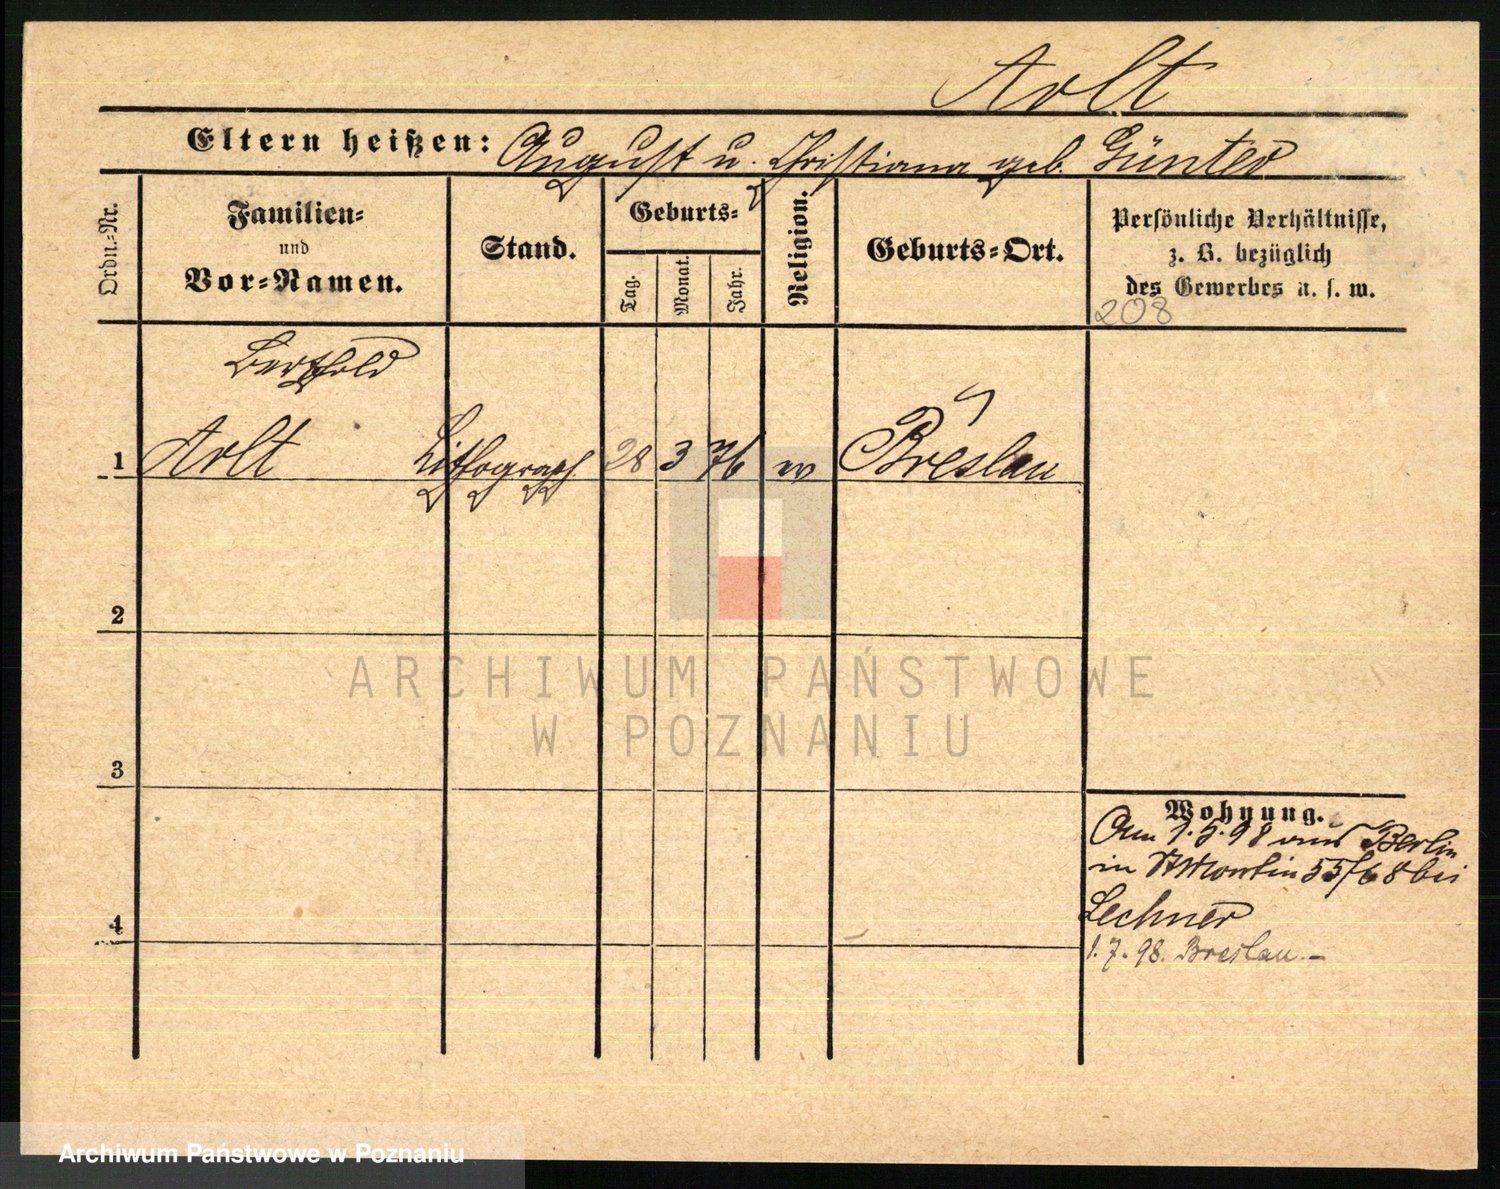 Arlt
Eltern heißen: August u. Christiana geb. Günter
Ordn.-Nr.
Familien-
und
Vor-Namen.
Stand.
Geburts-
Tag.
Monat.
Jahr.
Religion.
Geburts-Ort.
Persönliche Verhältnisse,
z. B. bezüglich
des Gewerbes u. s. w.
208
Berthold
1 Arlt Lithograph 28 3 76 ev Breslau
2
3
4
Wohnung.
Am 1.5.98 aus Berlin
in St Martin 55/68 bei
Lechner
1.7.98. Breslau.-
ARCHIWUM PAŃSTWOWE
W POZNANIU
Archiwum Państwowe w Poznaniu